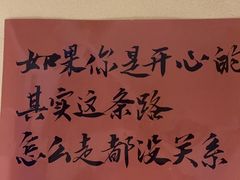 如果你是开心的
其实这条路
怎么走都没关系